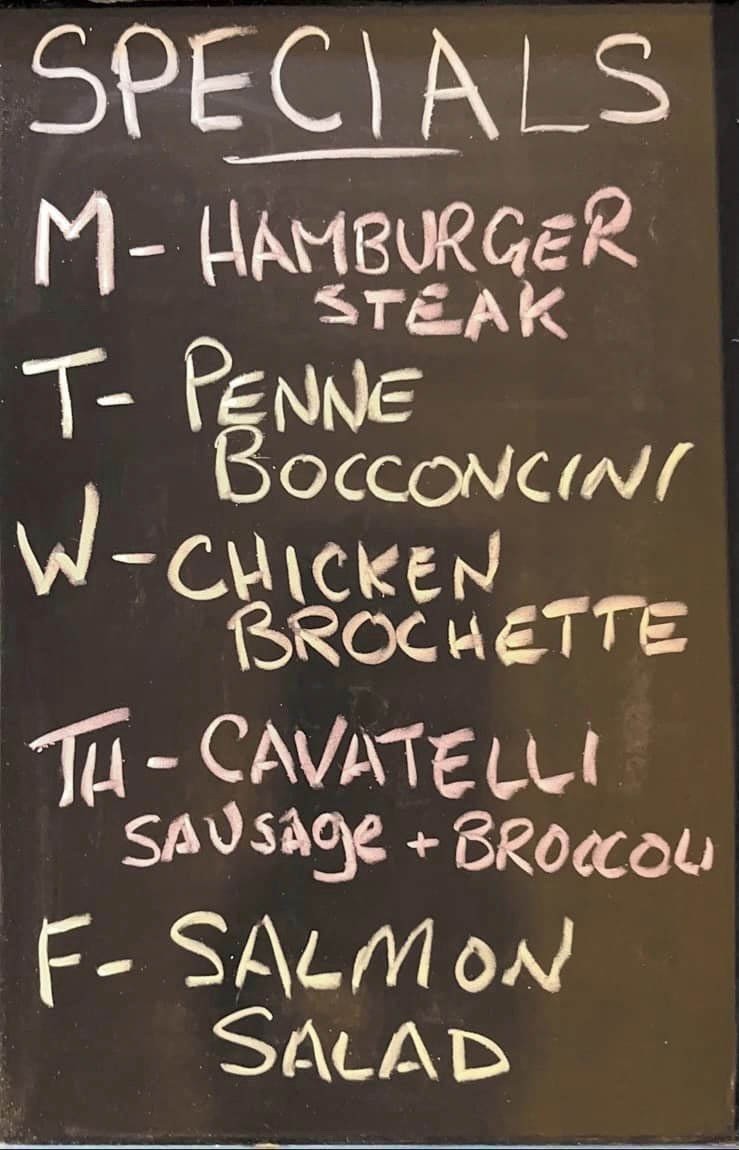 SPECIALS
M- HAMBURGER
STEAK
T- PENNE
BOCCONCINI
W- CHICKEN
BROCHETTE
TH- CAVATELLI
SAUSAge + BROCCOLI
F- SALMON
SALAD